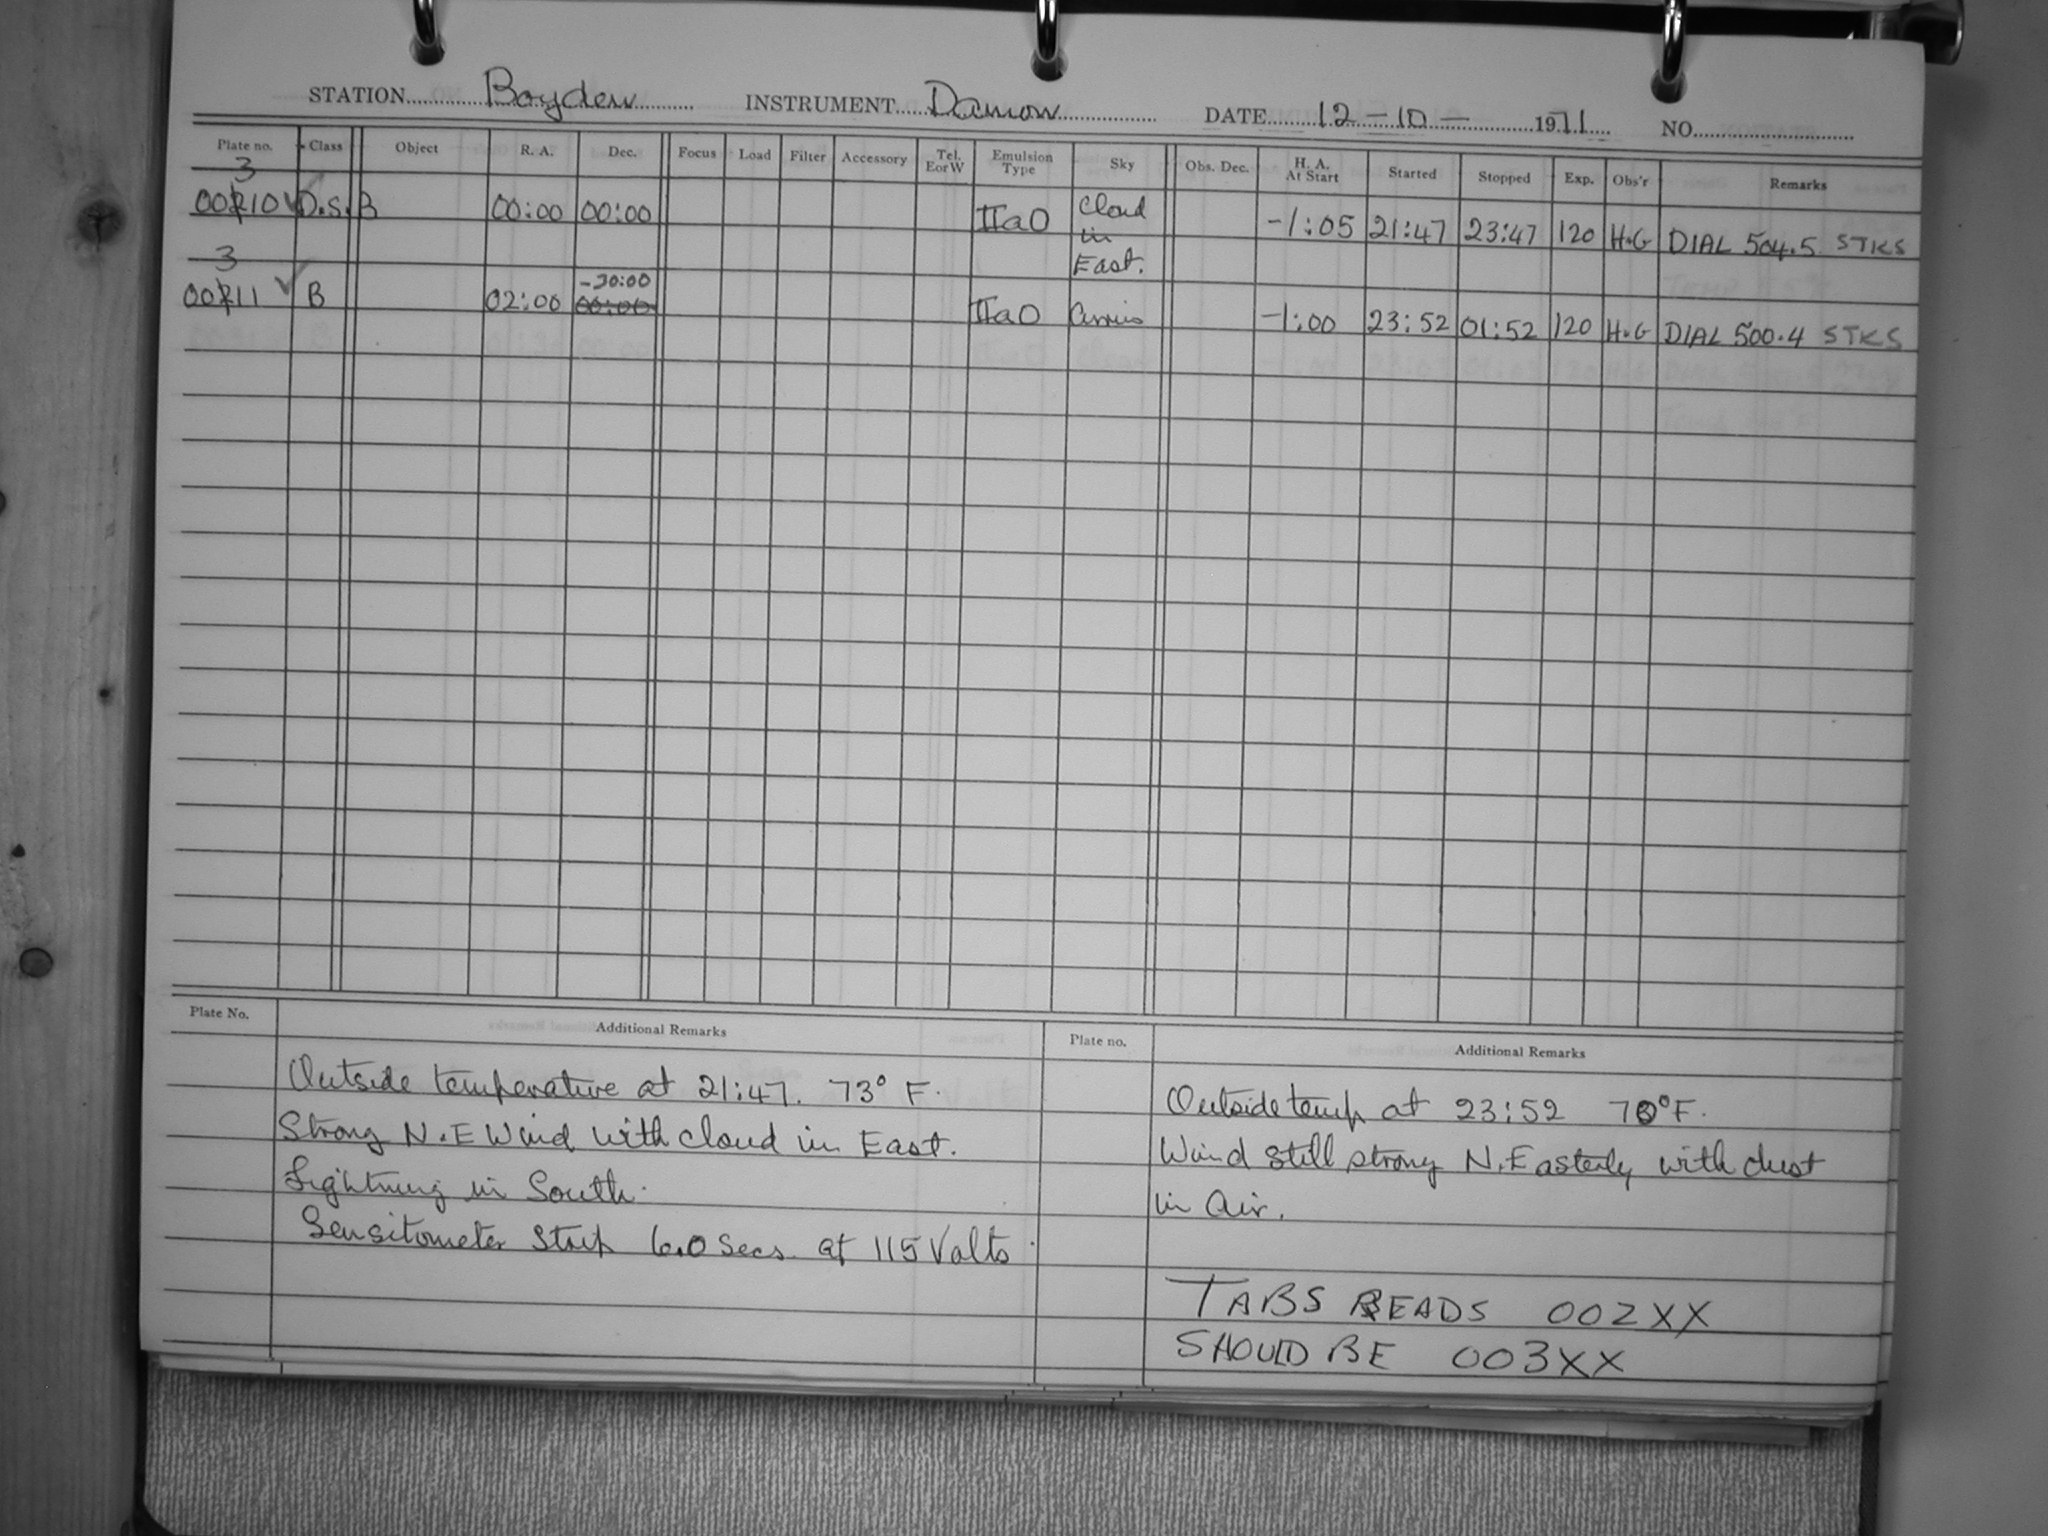 STATION Boyden INSTRUMENT Damon DATE 12-10- 1971 NO.
Plate no. Class Object R. A. Dec. Focus Load Filter Accessory Tel. E or W Emulsion Type Sky Obs. Dec. H. A. At Start Started Stopped Exp. Obs'r Remarks
3
00210 D.S. B 00:00 00:00 IIaO Cloud in East. -1:05 21:47 23:47 120 H.G DIAL 504.5 STKS
3
00211 B 02:00 -30:00 00:00 IIaO Cirrus -1:00 23:52 01:52 120 H.G DIAL 500.4 STKS
Plate No. Additional Remarks
Outside temperature at 21:47. 73° F.
Strong N.E Wind with cloud in East.
Lightning in South.
Sensitometer Strip 6.0 Secs. at 115 Volts.
Plate no. Additional Remarks
Outside temp at 23:52 70°F.
Wind still strong N. Easterly with dust
in Air.
TABS READS 002XX
SHOULD BE 003XX